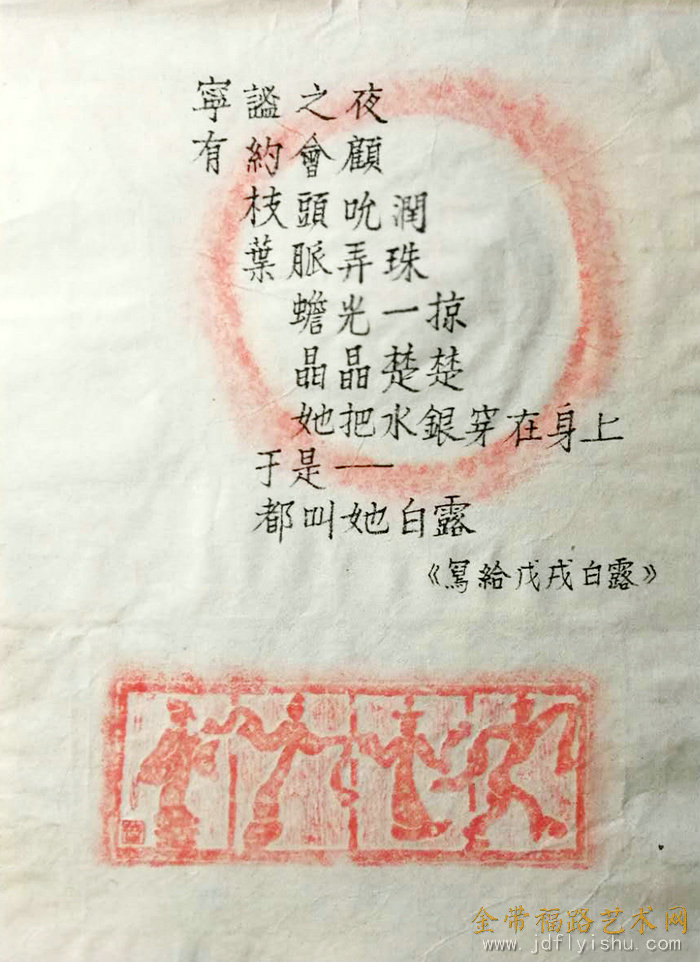 寧謐之夜
有約會顧
枝頭吮潤
葉脈弄珠
蟾光一掠
晶晶楚楚
她把水銀穿在身上
于是——
都叫她白露
《寫給戊戌白露》
金带福路艺术网
www.jdflyishu.com